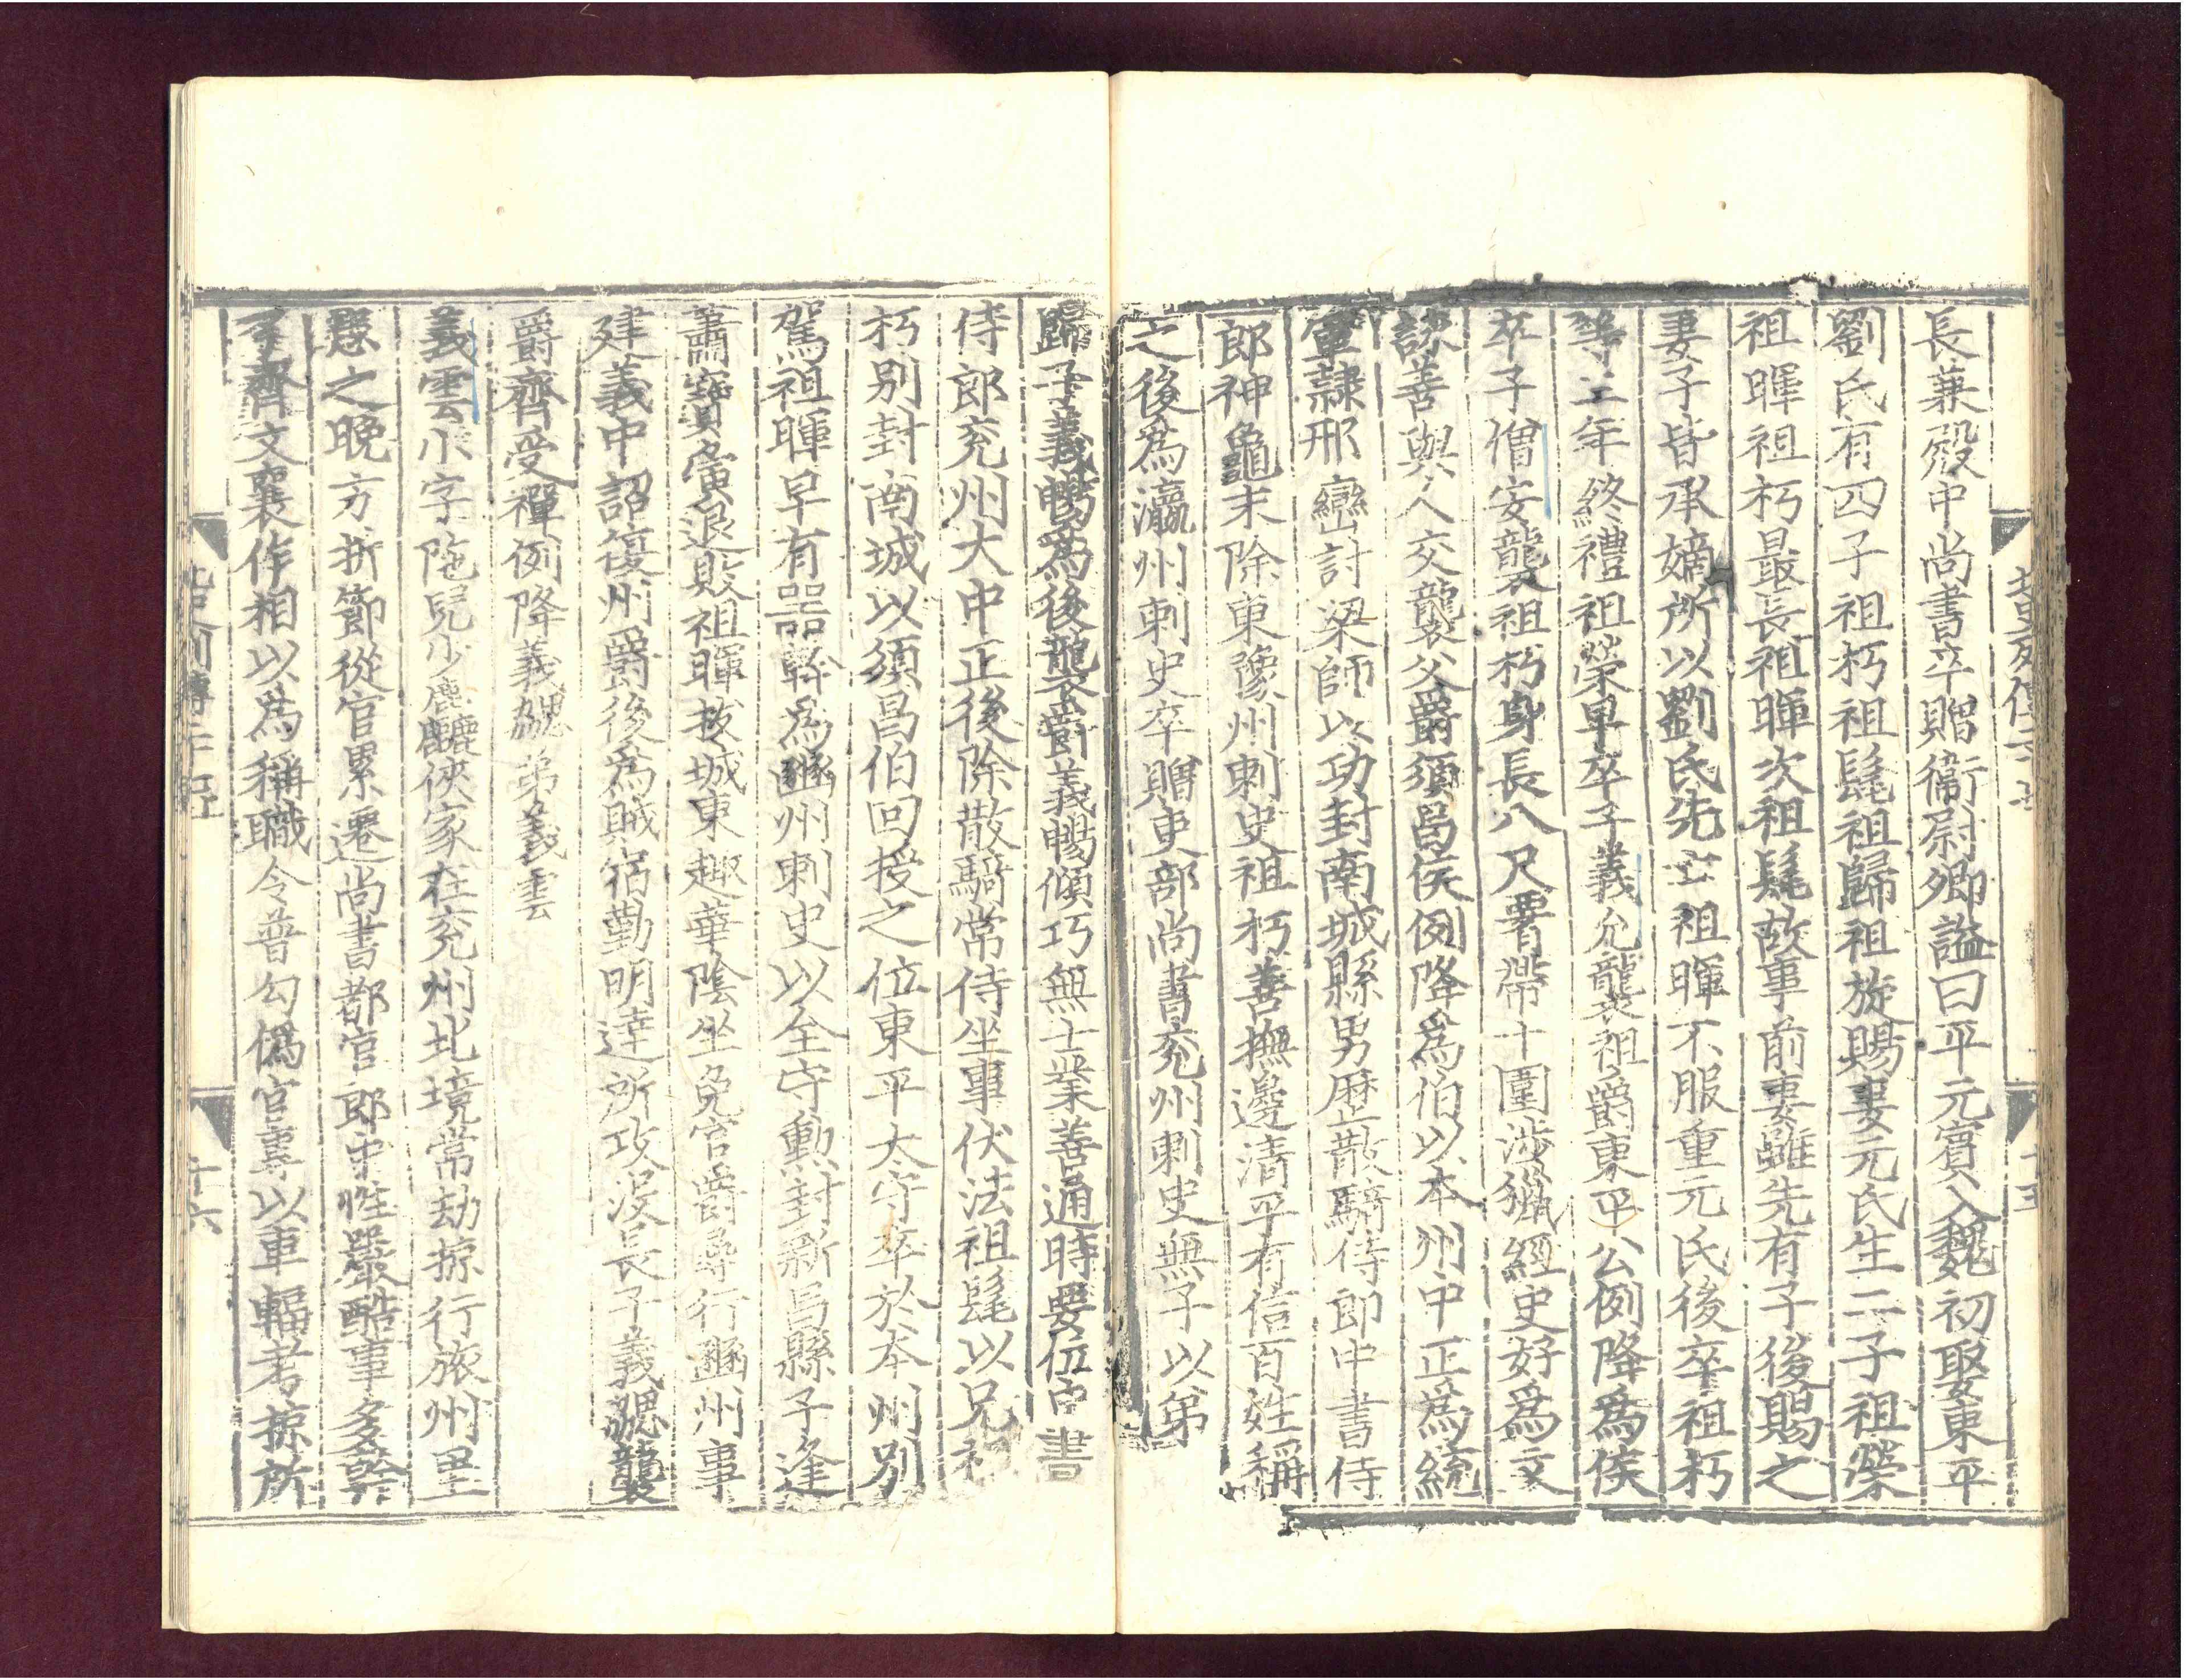 長兼殿中尚書卒贈衞尉卿謚曰平元賓入魏初娶東平
劉氏有四子祖朽祖髦祖歸祖旋賜妻元氏生二子祖榮
祖暉祖朽最長祖暉次祖髦故事前妻雖先有子後賜之
妻子皆承嫡所以劉氏先亡祖暉不服重元氏後卒祖朽
等三年終禮祖榮早卒子義允襲祖爵東平公例降爲侯
卒子僧安襲祖朽身長八尺署帶十圍涉獵經史好爲文
詠善與人交襲父爵須昌侯例降爲伯以本州中正爲統
軍隷邢巒討梁師以功封南城縣男歷散騎侍郎中書侍
郎神龜末除東豫州刺史祖朽善撫邊清平有信百姓稱
之後爲瀛州刺史卒贈吏部尚書兖州刺史無子以第
歸子義暢爲後襲爵義暢傾巧無士業善通時要位中書
侍郎兖州大中正後除散騎常侍坐事伏法祖髦以兄祖
朽别封南城以須昌伯回授之位東平太守卒於本州别
駕祖暉早有器幹爲豳州刺史以全守勲封新昌縣子逢
蕭寶夤退敗祖暉拔城東趣華陰坐免官爵尋行豳州事
建義中詔復州爵後爲賊宿勤明達所攻没長子義勰襲
爵齊受禪例降義勰弟義雲
義雲小字陁兒少麄麤俠家在兖州北境常劫掠行旅州里
患之晚方折節從官累遷尚書都官郎中性嚴酷事多幹
了齊文襄作相以爲稱職令普勾僞官專以車輻考掠所
北史列傳二十七
十六